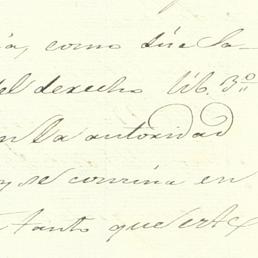 ia, como dire la-
del derecho lib. 3º
en la autoridad
y se convina en
tanto que este